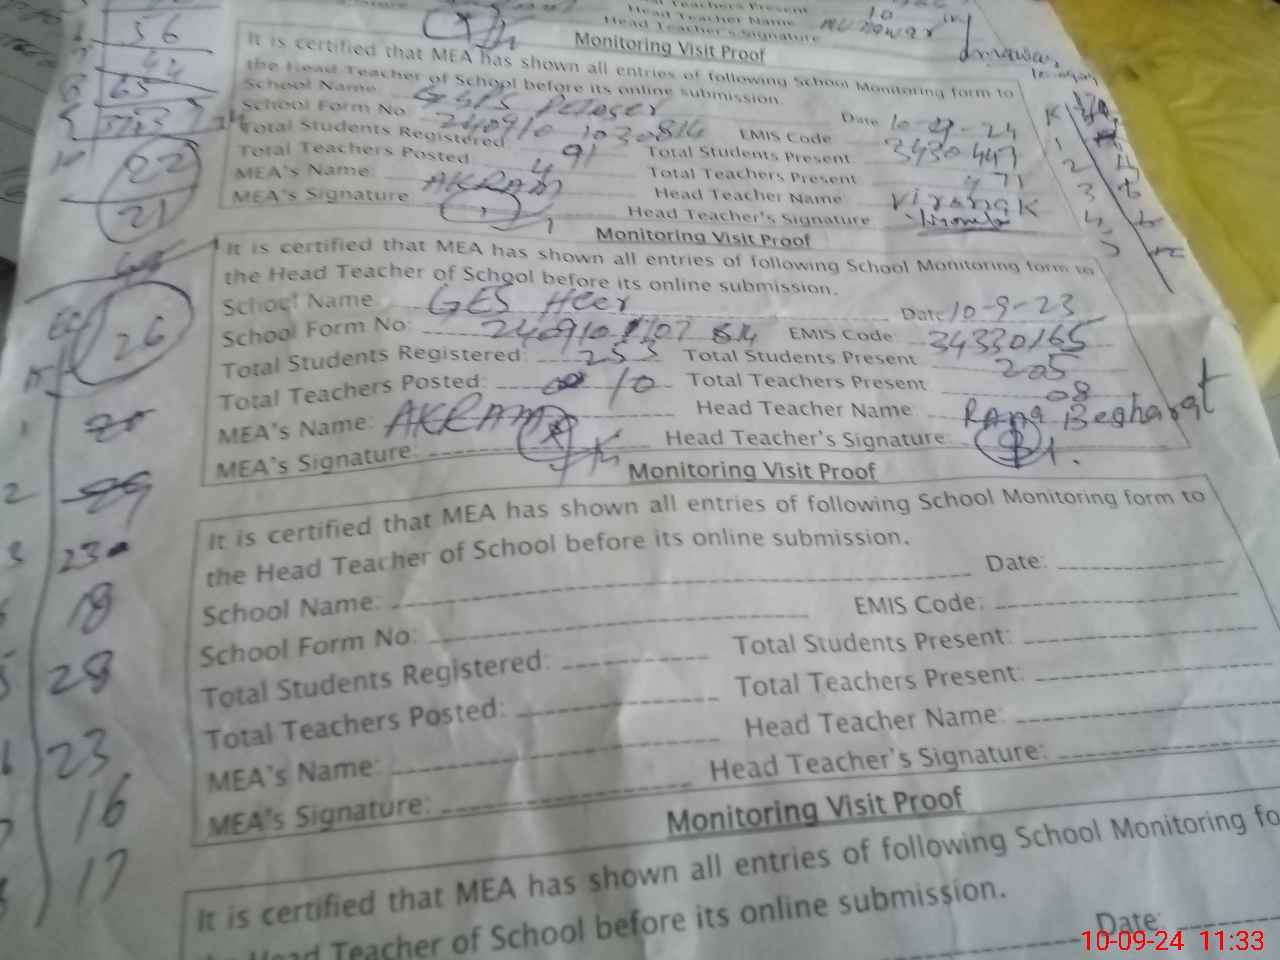 Total Teachers Present 10
Head Teacher Name
Head Teacher's Signature
Monitoring Visit Proof
It is certified that MEA has shown all entries of following School Monitoring form to
the Head Teacher of School before its online submission.
School Name Date 10-9-24
School Form No 240910 1030814 EMIS Code
Total Students Registered 91 Total Students Present
Total Teachers Posted 4 Total Teachers Present
MEA's Name AKRAM Head Teacher Name
MEA's Signature Head Teacher's Signature
Monitoring Visit Proof
It is certified that MEA has shown all entries of following School Monitoring form to
the Head Teacher of School before its online submission.
School Name GES Heer Date 10-9-23
School Form No: EMIS Code 34330165
Total Students Registered: 253 Total Students Present 205
Total Teachers Posted: 10 Total Teachers Present 08
MEA's Name: AKRAM Head Teacher Name: Rana
MEA's Signature: Head Teacher's Signature:
Monitoring Visit Proof
It is certified that MEA has shown all entries of following School Monitoring form to
the Head Teacher of School before its online submission.
School Name: Date:
School Form No: EMIS Code:
Total Students Registered: Total Students Present:
Total Teachers Posted: Total Teachers Present:
MEA's Name: Head Teacher Name:
MEA's Signature: Head Teacher's Signature:
Monitoring Visit Proof
It is certified that MEA has shown all entries of following School Monitoring fo
Head Teacher of School before its online submission.
Date:
56
22
21
26
1
2
3 23
18
28
23
16
17
10-09-24 11:33